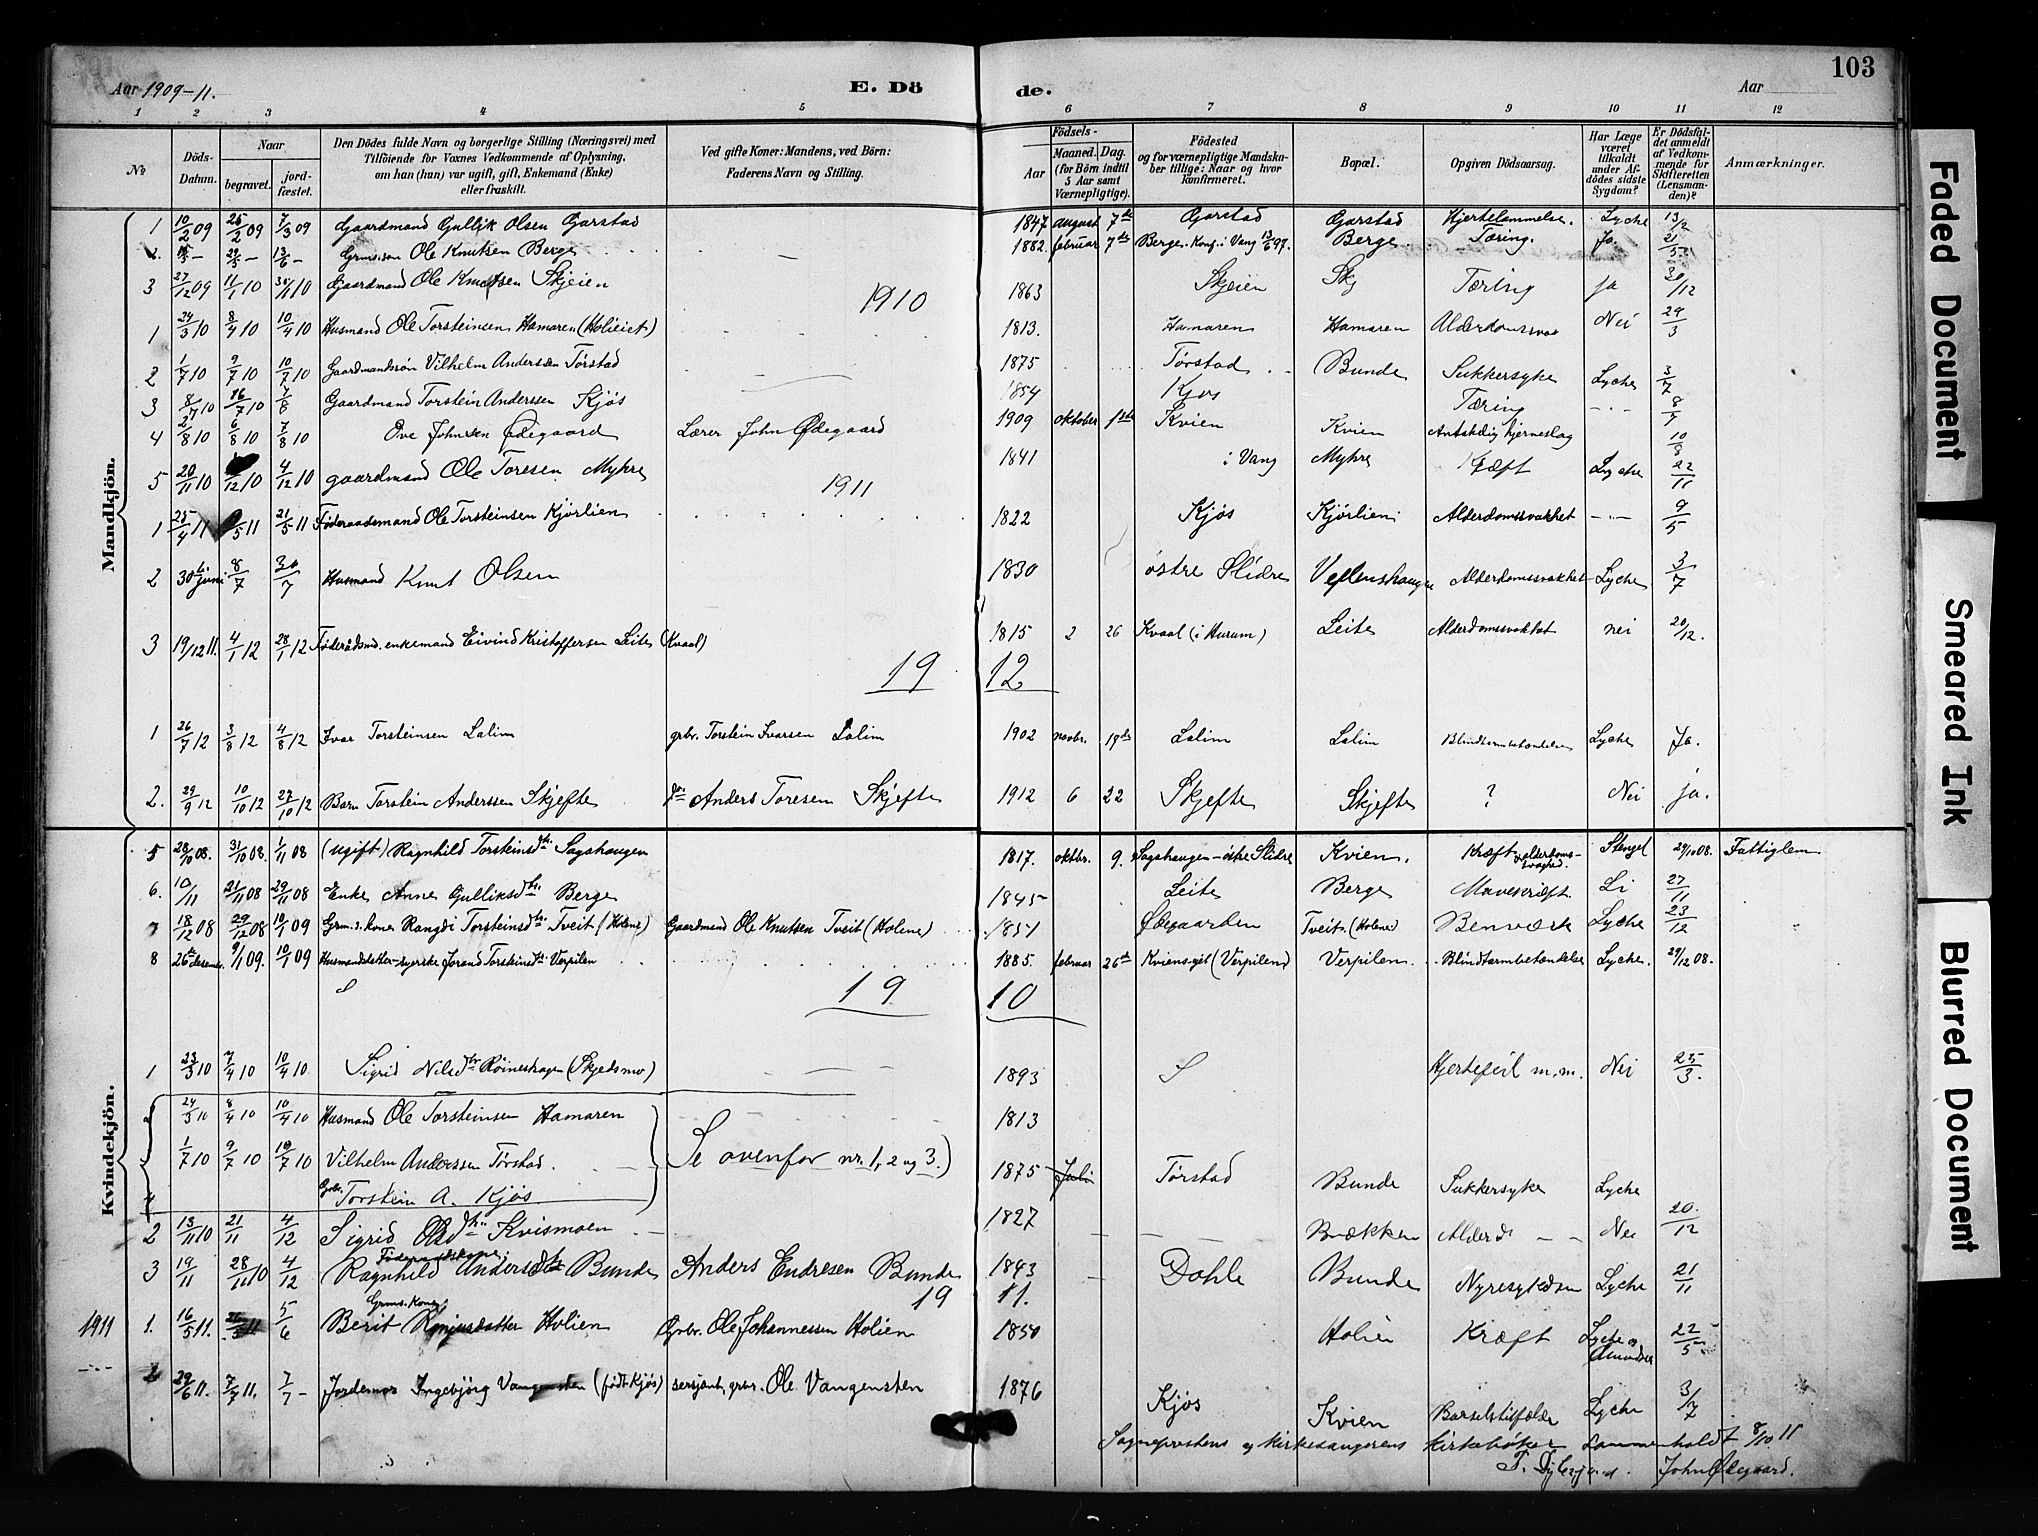 103
Aar 1909-11. E. Dö de. Aar
1 2 3 4 5 6 7 8 9 10 11 12
No Döds-Datum. Naar begravet. jord-fæstet. Den Dödes fulde Navn og borgerlige Stilling (Næringsvei) med Tilföiende for Voxnes Vedkommende af Oplysning, om han (hun) var ugift, gift, Enkemand (Enke) eller fraskilt. Ved gifte Koner: Mandens, ved Börn: Faderens Navn og Stilling. Födsels- Aar Maaned. Dag. (for Börn indtil 5 Aar samt Værnepligtige). Födested og for værnepligtige Mandska-ber tillige: Naar og hvor konfirmeret. Bopæl. Opgiven Dödsaarsag. Har Læge været tilkaldt under Af-dödes sidste Sygdom? Er Dödsfal-det anmeldt af Vedkom-mende for Skifteretten (Lensman-den)? Anmærkninger.
Mandkjön.
1 10/2 09 25/2 09 7/3 09 Gaardmand Gullik Olsen Garstad 1847 august 7de Garstad Garstad Hjertelammelse. Lyche 13/2
2. 29/5 - 13/6 - Grms.søn Ole Knutsen Berge — 1882. februar 7de Berge. Konf. i Vang 13/6 97. Berge. Tæring. Ja. 21/5
3 27/12 09 11/1 10 30/1 10 Gaardmand Ole Knutsen Skjeien 1863 Skjeien Skj Tæring ja 30/12
1910
1 24/3 10 8/4 10 10/4 10 Husmand Ole Torsteinsen Hamaren (Holieiet) 1813. Hamaren Hamaren Alderdomssva Nei 29/3
2 1/7 10 9/7 10 10/7 10 Gaardmandssøn Vilhelm Anderssen Tørstad 1875 Tørstad Bunde Sukkersyke Lyche 3/7
3 8/7 10 16/7 10 7/8 Gaardmand Torstein Anderssen Kjøs 1854 Kjøs Tæring -"- 8/9
4 2/8 10 6/8 10 7/8 10 Ove Johnsen Ødegaard Lærer John Ødegaard 1909 oktober 1ste Kvien Kvien Antakelig hjerneslag 10/8
5 20/11 10 /12 10 4/12 10 gaardmand Ole Toresen Myhre 1841 i Vang Myhre Kræft Lyche 22/11
1911
1 25/4 11 /5 11 21/5 11 Føderaadsmand Ole Torsteinsen Kjørlien 1822 Kjøs Kjørlien Alderdomssvakhet -"- 9/5
2 30te juni 8/7 30/7 Husmand Knut Olsen 1830 østre Slidre Veflenshaugen Alderdomssvakhet Lyche 3/7
3 19/12 11. 4/1 12 28/1 12 Føderådsmd. enkemand Eivind Kristoffersen Leite (Kvaal) 1815 2 26 Kvaal (i Hurum) Leite Alderdomssvakhet nei 20/12.
19 12
1 26/7 12 3/8 12 4/8 12 Ivar Torsteinsen Lalim grbr. Torstein Ivarsen Lalim 1902 novbr. 19de Lalim Lalim Blindtarmbetændelse Lyche Ja.
2. 29/9 12 10/10 12 27/10 12 Barn Torstein Anderssen Skjefte Anders Toresen Skjefte 1912 6 22 Skjefte Skjefte ? Nei ja.
Kvindekjön.
5 28/10 08. 31/10 08. 1/11 08 (ugift) Ragnhild Torsteinsdtr. Sagahaugen 1817. oktbr. 9. Sagahaugen - østre Slidre Kvien. Kræft alderdoms-svaghed. Stengel 29/10 08. Fattiglem
6. 10/11 21/11 08 29/11 08 Enke Anne Gulliksdtr. Berge 1845 Leite Berge Mavekræft Li 27/11
7 18/12 08 29/12 08 10/1 09 Grm.s. kone Rangdi Torsteinsdtr. Tveit (Holene) Gaardmand Ole Knutsen Tveit (Holene) 1851 Ødegaarden Tveit (Holene) Benværk Lyche 23/12
8 26de desember 9/1 09. 10/1 09 Husmandsdatter-syerske Jorand Torsteinsdtr. Verpilen 1885. februar 26de Kviensejet (Verpilen) Verpilen. Blindtarmbetændelse Lyche. 29/12 08.
19 10
1 23/3 10 7/4 10 10/4 10 Sigrid Nilsdtr Røineshagen (Skjedsmo) 1893 S Hjertefeil m.m. Nei 25/3.
24/3 10 8/4 10 10/4 10 Husmand Ole Torsteinsen Hamaren 1813
1/7 10 9/7 10 10/7 10 Vilhelm Anderssen Tørstad. Se ovenfor nr. 1, 2 og 3.) 1875 Juli Tørstad Bunde Sukkersyke Lyche
4 Grbr. Torstein A. Kjøs
2 13/11 10 21/11 4/12 Sigrid Olsdtr. Kvismoen 1827 Brækken Alderd - - Nei 20./12
3 19/11 28/11 10 4/12 Føderaadskone Ragnhild Andersdtr Bunde Anders Endresen Bunde 1843 Dahle Bunde Nyresykdom Lyche 21/11
19 11.
1911 1. 16/5 11. 11 5/6 Grms. Kone Berit Holien Grbr. Ole Johannessen Holien 1850 Holien Kræft Lyche og Amundsen 22/5
-"- 2 29/6 11. 7/7 11. 7/7 - Jordemor Ingebjørg Vangensten (født Kjøs) sersjant, grbr. Ole Vangensten 1876 Kjøs Kvien Barselstilfælde Lyche 3/7
Sogneprestens og kirkesangerens kirkebøker sammenholdt 8/10 11
John Ødegaard.
Faded Document
Smeared Ink
Blurred Document